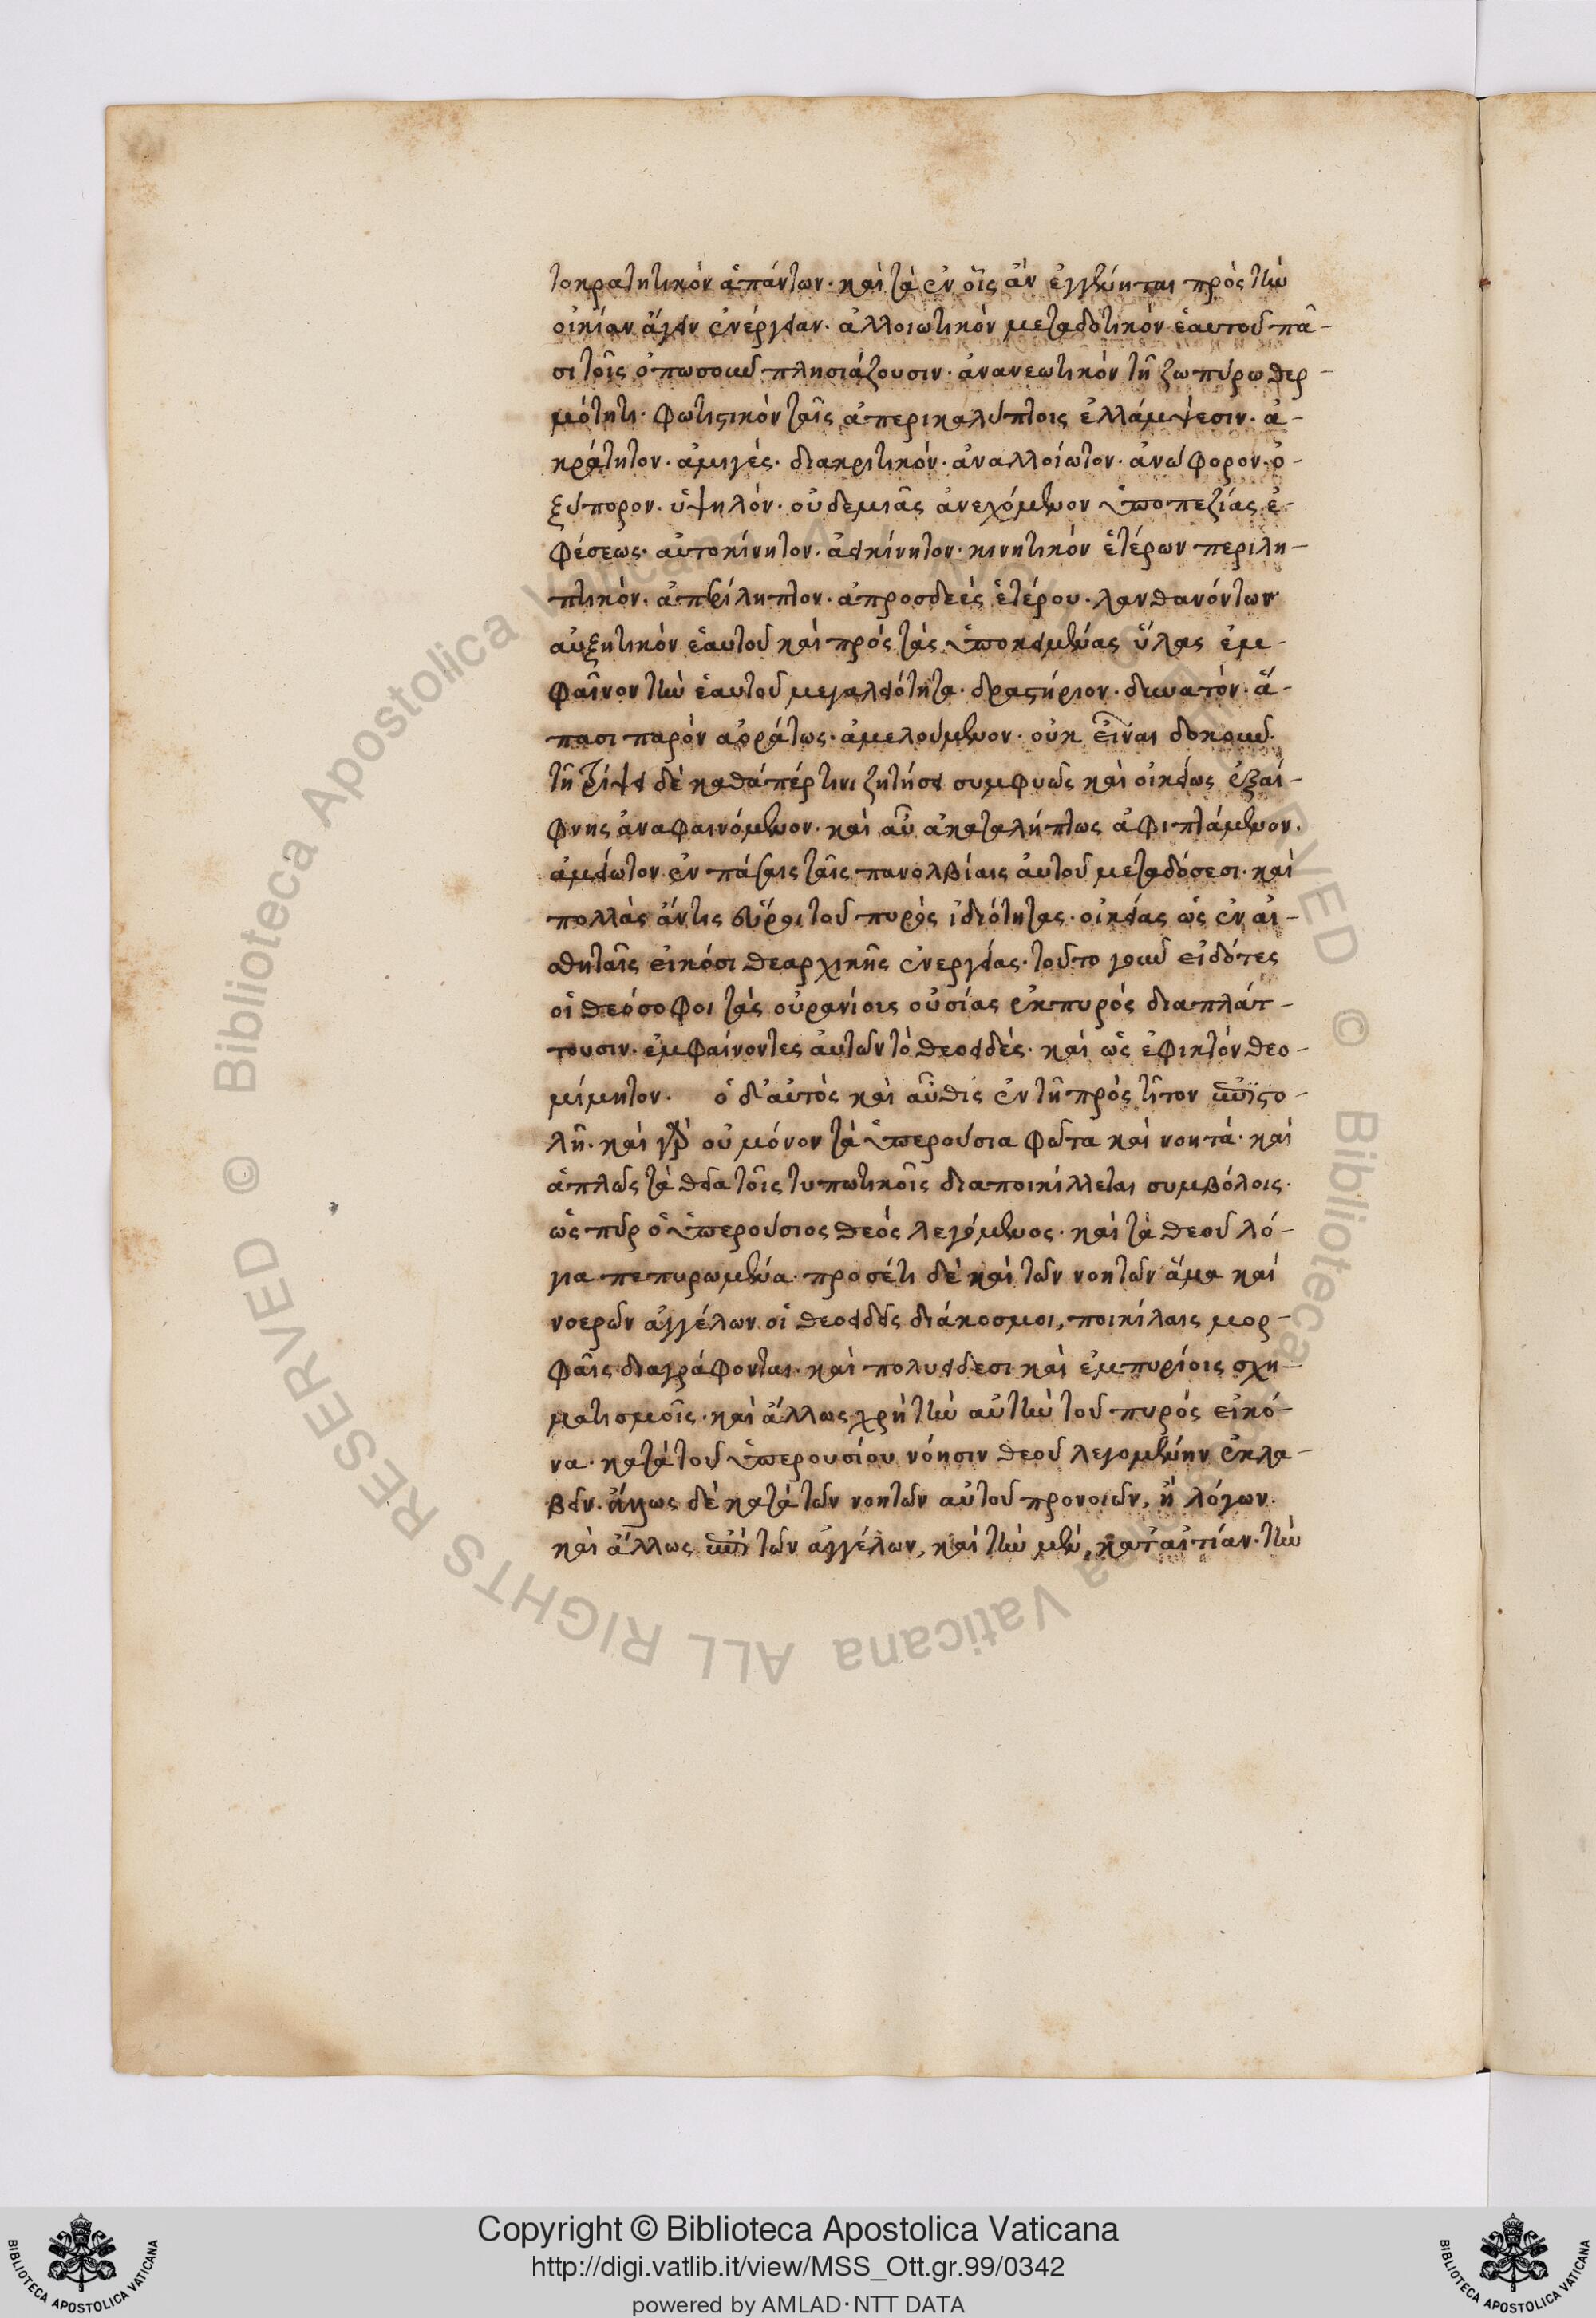 τοκρατητικὸν ἁπάντων· καὶ τὰ ἐν οἷς ἂν ἐγγένηται πρὸς τὴν
οἰκίαν ἄγειν ἐνέργειαν· ἀλλοιωτικὸν μεταδοτικὸν ἑαυτοῦ πᾶ-
σι τοῖς ὁπωσοῦν πλησιάζουσιν· ἀνανεωτικὸν τῇ ζωπύρω θερ-
μότητι· φωτιστικὸν ταῖς ἀπερικαλύπτοις ἐλλάμψεσιν· ἀ-
κράτητον· ἀμιγές· διακριτικόν· ἀναλλοίωτον· ἀνώφορον· ὀ-
ξύπορον· ὑψηλόν· οὐδεμιᾶς ἀνεχόμενον ὑποπεζίας ἐ-
φέσεως· αὐτοκίνητον· ἀεικίνητον· κινητικὸν ἑτέρων περιλη-
πτικόν· ἀπερίληπτον· ἀπροσδεὲς ἑτέρου· λανθανόντων
αὐξητικὸν ἑαυτοῦ καὶ πρὸς τὰς ὑποκειμένας ὕλας ἐμ-
φαῖνον τὴν ἑαυτοῦ μεγαλειότητα· δραστήριον· δυνατόν· ἅ-
πασι παρὸν ἀοράτως· ἀμελούμενον· οὐκ εἶναι δοκοῦν·
τῇ τρίψει δὲ καθάπέρ τινι ζητήσει συμφυῶς καὶ οἰκείως ἐξαί-
φνης ἀναφαινόμενον· καὶ αὖ ἀκαταλήπτως ἀφιπτάμενον·
ἀμείωτον ἐν πάσαις ταῖς πανολβίαις αὐτοῦ μεταδόσεσι· καὶ
πολλὰς ἄν τις εὕροι τοῦ πυρὸς ἰδιότητας· οἰκείας ὡς ἐν αἰ-
σθηταῖς εἰκόσι θεαρχικῆς ἐνεργείας· τοῦτο γοῦν εἰδότες
οἱ θεόσοφοι τὰς οὐρανίοις οὐσίας ἐκ πυρὸς διαπλάτ-
τουσιν· ἐμφαίνοντες αὐτῶν τὸ θεοειδές· καὶ ὡς ἐφικτὸν θεο-
μίμητον· ὁ δ' αὐτὸς καὶ αὖθις ἐν τῇ πρὸς τίτον ἐπιστο-
λῇ· καὶ γὰρ οὐ μόνον τὰ ὑπερούσια φῶτα καὶ νοητά· καὶ
ἁπλῶς τὰ θεῖα τοῖς τυπωτικοῖς διαποικίλλεται συμβόλοις·
ὡς πῦρ ὁ ὑπερούσιος θεὸς λεγόμενος· καὶ τὰ θεοῦ λό-
για πεπυρωμένα· προσέτι δὲ καὶ τῶν νοητῶν ἅμα καὶ
νοερῶν ἀγγέλων οἱ θεοειδεῖς διάκοσμοι, ποικίλαις μορ-
φαῖς διαγράφονται· καὶ πολυειδέσι καὶ ἐμπυρίοις σχη-
ματισμοῖς· καὶ ἄλλως χρὴ τὴν αὐτὴν τοῦ πυρὸς εἰκό-
να· κατὰ τοῦ ὑπερουσίου νόησιν θεοῦ λεγομένην ἐκλα-
βεῖν· ἄλλως δὲ κατὰ τῶν νοητῶν αὐτοῦ προνοιῶν, ἢ λόγων·
καὶ ἄλλως ἐπὶ τῶν ἀγγέλων, καὶ τὴν μέν, κατ' αἰτίαν· τὴν
Copyright © Biblioteca Apostolica Vaticana
http://digi.vatlib.it/view/MSS_Ott.gr.99/0342
powered by AMLAD·NTT DATA
© Biblioteca Apostolica Vaticana ALL RIGHTS RESERVED © Biblioteca Apostolica Vaticana ALL RIGHTS RESERVED
BIBLIOTECA APOSTOLICA VATICANA
BIBLIOTECA APOSTOLICA VATICANA